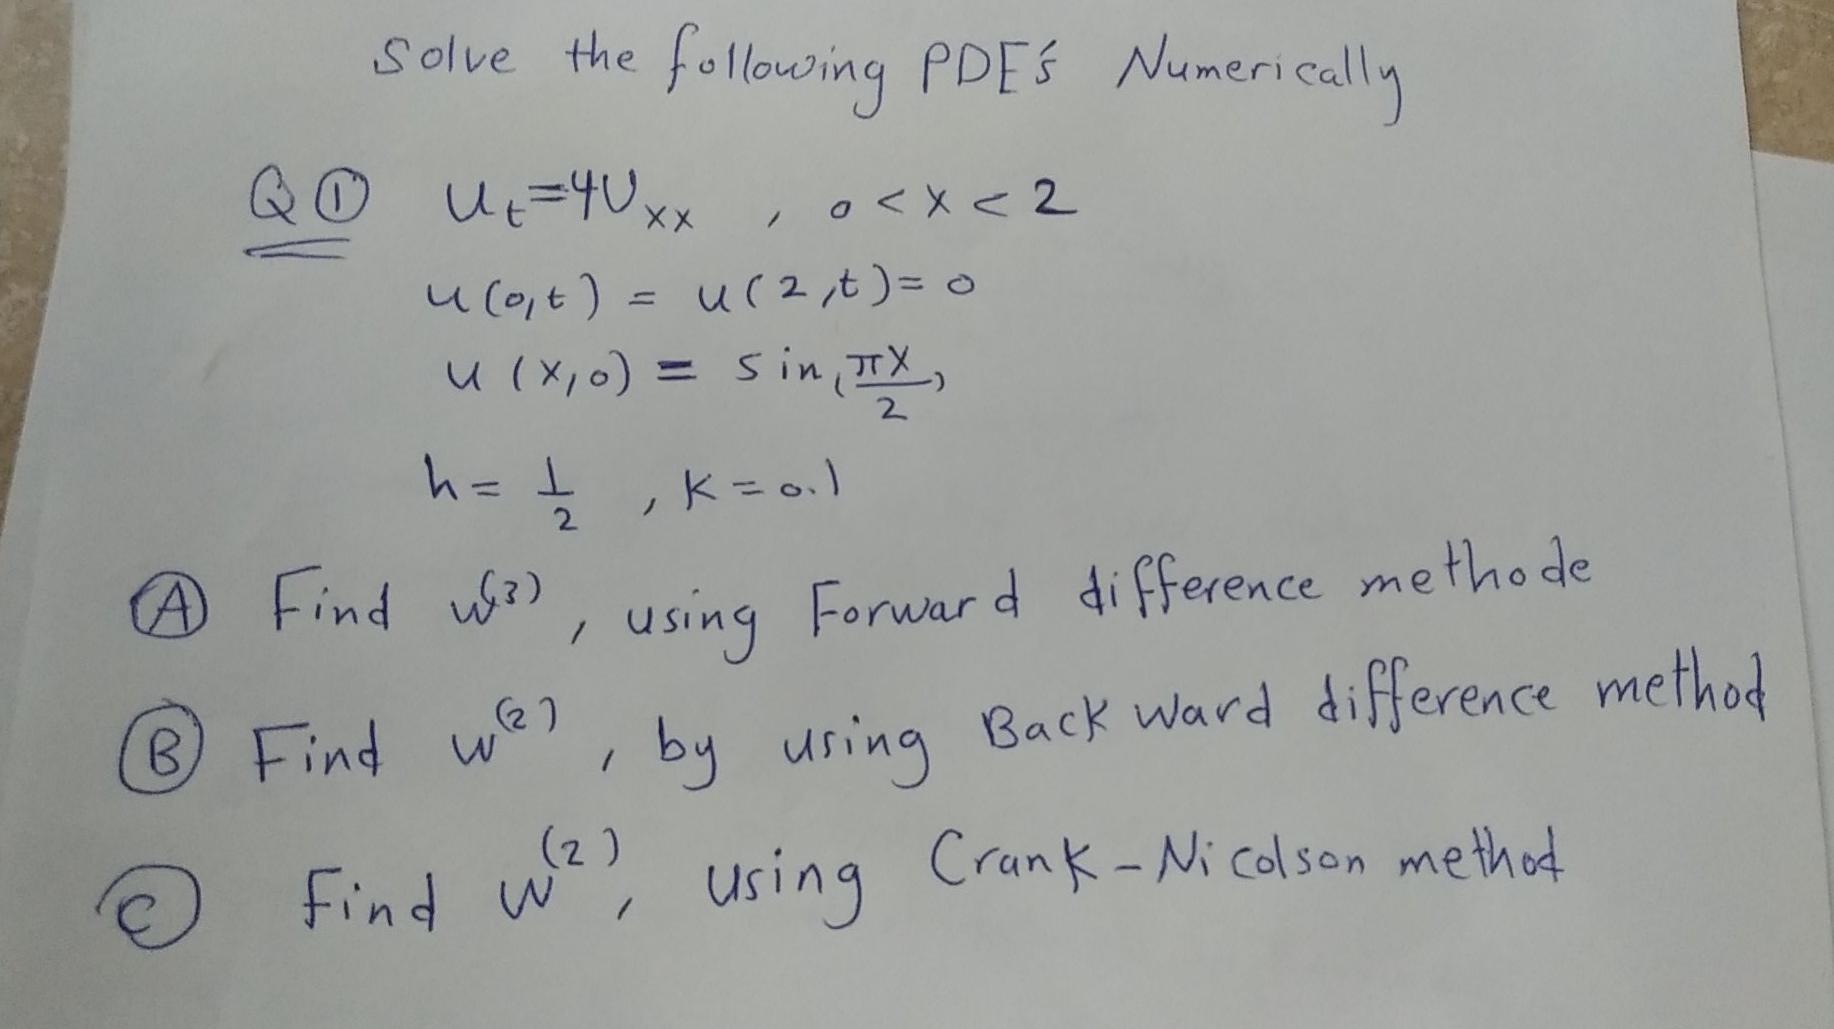 Solve the following PDE's Numerically
Q① u_t=4U_xx , 0<x<2
u(0,t) = u(2,t)=0
u(x,0) = sin(πx/2)
h=1/2 , K=0.1
Ⓐ Find w^(3), using Forward difference methode
Ⓑ Find w^(2), by using Back ward difference method
Ⓒ Find w^(2), using Crank-Nicolson method